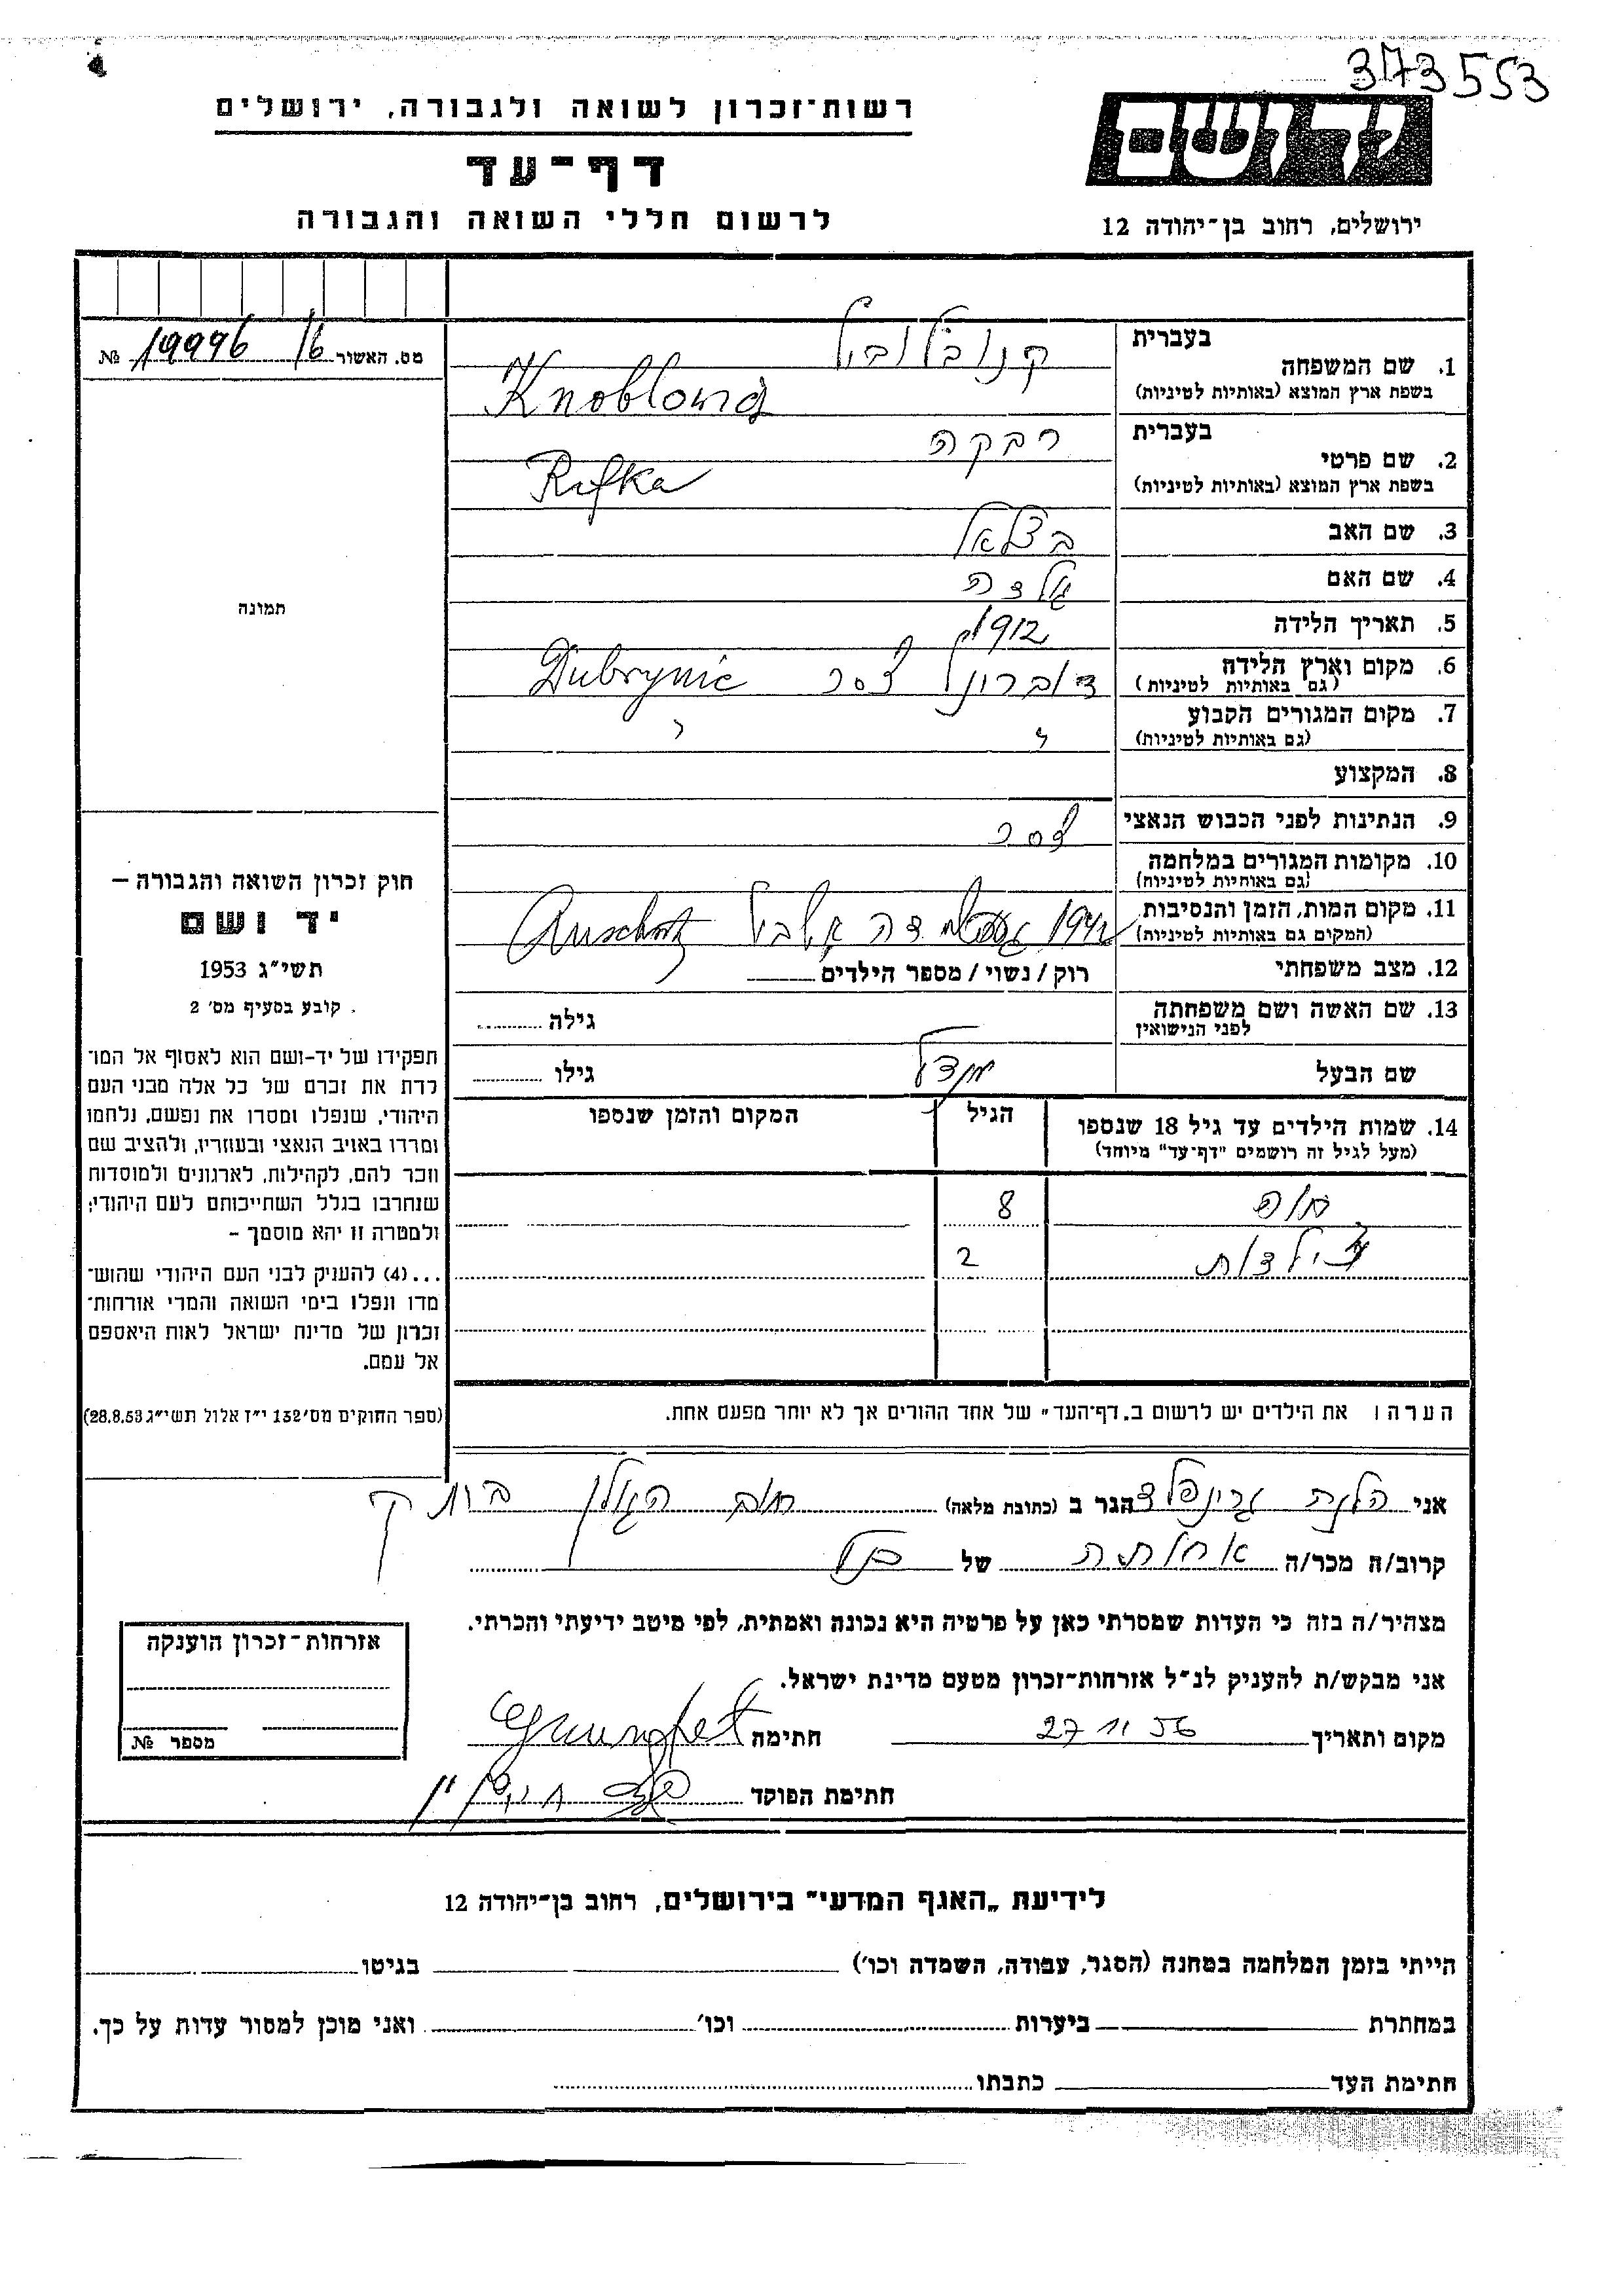 373553
רשות־זכרון לשואה ולגבורה, ירושלים
דף־עד
לרשום חללי השואה והגבורה
יד ושם
ירושלים, רחוב בן־יהודה 12
מס. האשור 16/ 19996 №
תמונה
חוק זכרון השואה והגבורה —
יד ושם
תשי״ג 1953
קובע בסעיף מס׳ 2
תפקידו של יד־ושם הוא לאסוף אל המו־
לדת את זכרם של כל אלה מבני העם
היהודי, שנפלו ומסרו את נפשם, נלחמו
ומרדו באויב הנאצי ובעוזריו, ולהציב שם
וזכר להם, לקהילות, לארגונים ולמוסדות
שנחרבו בגלל השתייכותם לעם היהודי;
ולמטרה זו יהא מוסמך —
...(4) להעניק לבני העם היהודי שהוש־
מדו ונפלו בימי השואה והמרי אזרחות־
זכרון של מדינת ישראל לאות היאספם
אל עמם.
(ספר החוקים מס׳ 132 י״ז אלול תשי״ג 28.8.53)
בעברית
1. שם המשפחה
בשפת ארץ המוצא (באותיות לטיניות)
בעברית רבקה
2. שם פרטי
בשפת ארץ המוצא (באותיות לטיניות) Rifka
3. שם האב בצלאל
4. שם האם גולדה
5. תאריך הלידה 1912
6. מקום וארץ הלידה
(גם באותיות לטיניות) Dubrynic
7. מקום המגורים הקבוע
(גם באותיות לטיניות)
8. המקצוע
9. הנתינות לפני הכבוש הנאצי צ׳כס
10. מקומות המגורים במלחמה
(גם באותיות לטיניות)
11. מקום המות, הזמן והנסיבות 1942
(המקום גם באותיות לטיניות)
12. מצב משפחתי רוק / נשוי / מספר הילדים
13. שם האשה ושם משפחתה גילה
לפני הנישואין
שם הבעל מנדל גילו
14. שמות הילדים עד גיל 18 שנספו הגיל המקום והזמן שנספו
(מעל לגיל זה רושמים ״דף־עד״ מיוחד)
8
ילדות 2
הערה: את הילדים יש לרשום ב„דף־העד״ של אחד ההורים אך לא יוחר מפעם אחת.
אני הלנה גרינפלד הגר ב (כתובת מלאה)
קרוב/ה מכר/ה של
מצהיר/ה בזה כי העדות שמסרתי כאן על פרטיה היא נכונה ואמתית, לפי מיטב ידיעתי והכרתי.
אני מבקש/ת להעניק לנ״ל אזרחות־זכרון מטעם מדינת ישראל.
מקום ותאריך 27 11 56 חתימה
חתימת הפוקד
אזרחות־זכרון הוענקה
מספר №
לידיעת „האגף המדעי״ בירושלים, רחוב בן־יהודה 12
הייתי בזמן המלחמה במחנה (הסגר, עבודה, השמדה וכו׳) בגיטו
במחתרת ביערות וכו׳ ואני מוכן למסור עדות על כך.
חתימת העד כתבתו